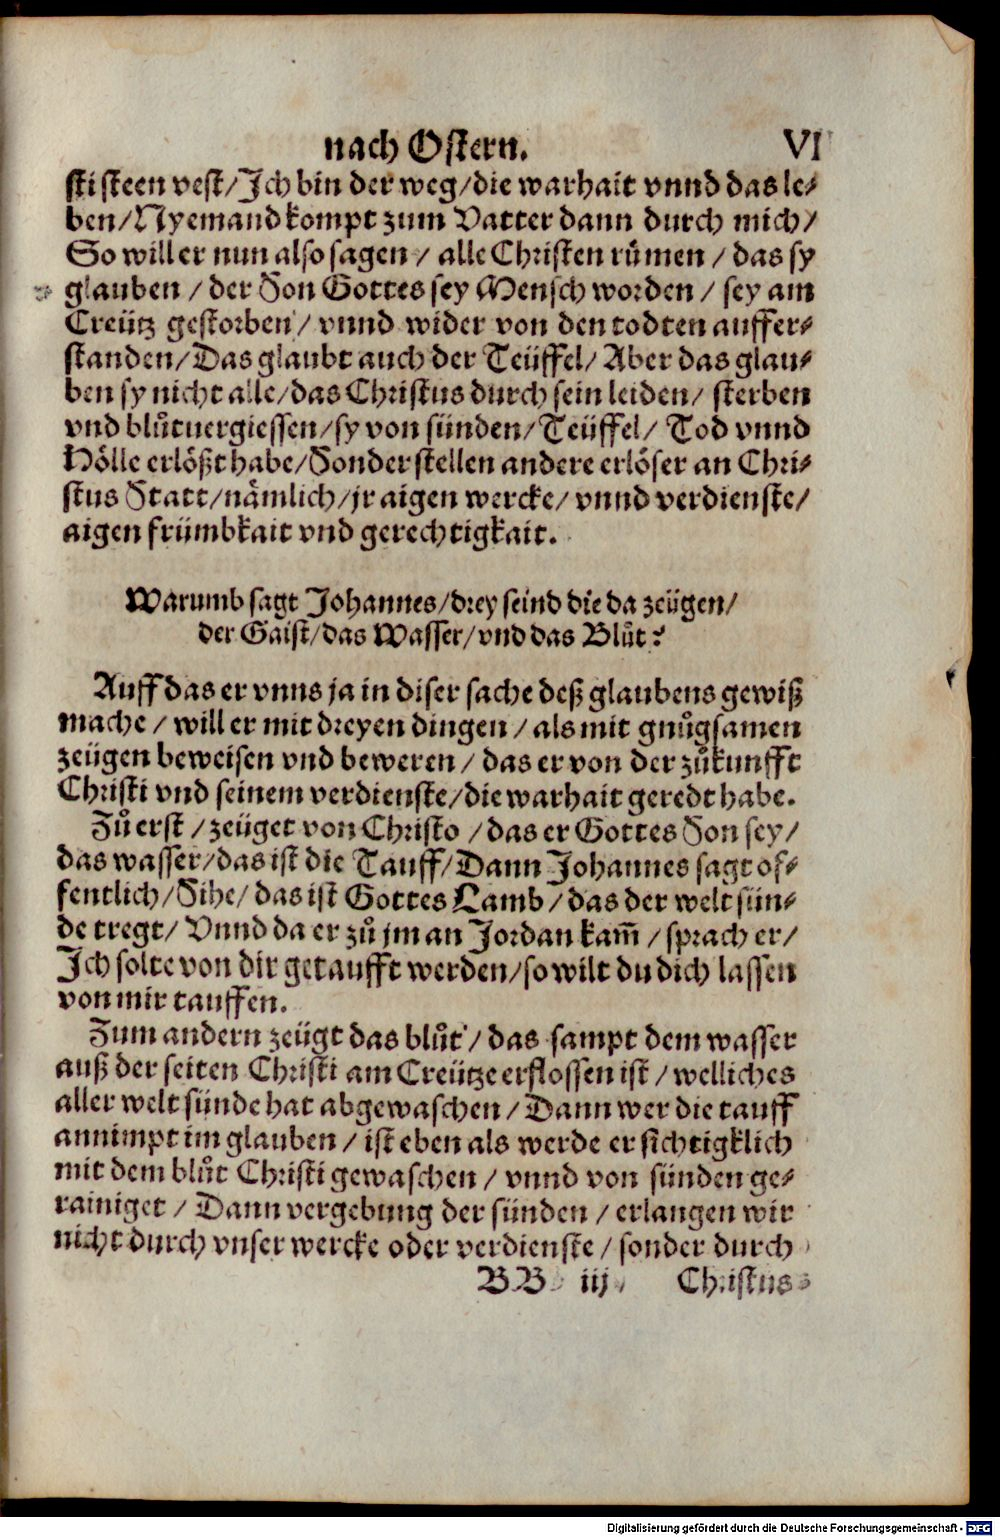 nach Ostern. VI
sti steen vest/Ich bin der weg/die warhait vnnd das le-
ben/Nyemand kompt zum Vatter dann durch mich/
So will er nun also sagen/ alle Christen rümen/ das sy
glauben/ der Son Gottes sey Mensch worden/ sey am
Creütz gestorben/ vnnd wider von den todten auffer-
standen/Das glaubt auch der Teüffel/Aber das glau-
ben sy nicht alle/das Christus durch sein leiden/ sterben
vnd blůtuergiessen/sy von sünden/Teüffel/ Tod vnnd
Hölle erlößt habe/Sonder stellen andere erlöser an Chri-
stus Statt/nämlich/jr aigen wercke/ vnnd verdienste/
aigen frümbkait vnd gerechtigkait.
Warumb sagt Johannes/drey seind die da zeügen/
der Gaist/das Wasser/vnd das Blůt?
Auff das er vnns ja in diser sache deß glaubens gewiß
mache/ will er mit dreyen dingen/ als mit gnůgsamen
zeügen beweisen vnd beweren/ das er von der zůkunfft
Christi vnd seinem verdienste/die warhait geredt habe.
Zů erst/ zeüget von Christo/das er Gottes Son sey/
das wasser/das ist die Tauff/Dann Johannes sagt of-
fentlich/Sihe/ das ist Gottes Lamb/das der welt sün-
de tregt/ Vnnd da er zů jm an Jordan kam̄/sprach er/
Ich solte von dir getaufft werden/so wilt du dich lassen
von mir tauffen.
Zum andern zeügt das blůt/ das sampt dem wasser
auß der seiten Christi am Creütze erflossen ist/welliches
aller welt sünde hat abgewaschen/Dann wer die tauff
annimpt im glauben/ ist eben als werde er sichtigklich
mit dem blůt Christi gewaschen/ vnnd von sünden ge-
rainiget/ Dann vergebung der sünden/ erlangen wir
nicht durch vnser wercke oder verdienste/ sonder durch
BB iij Christus
Digitalisierung gefördert durch die Deutsche Forschungsgemeinschaft - DFG